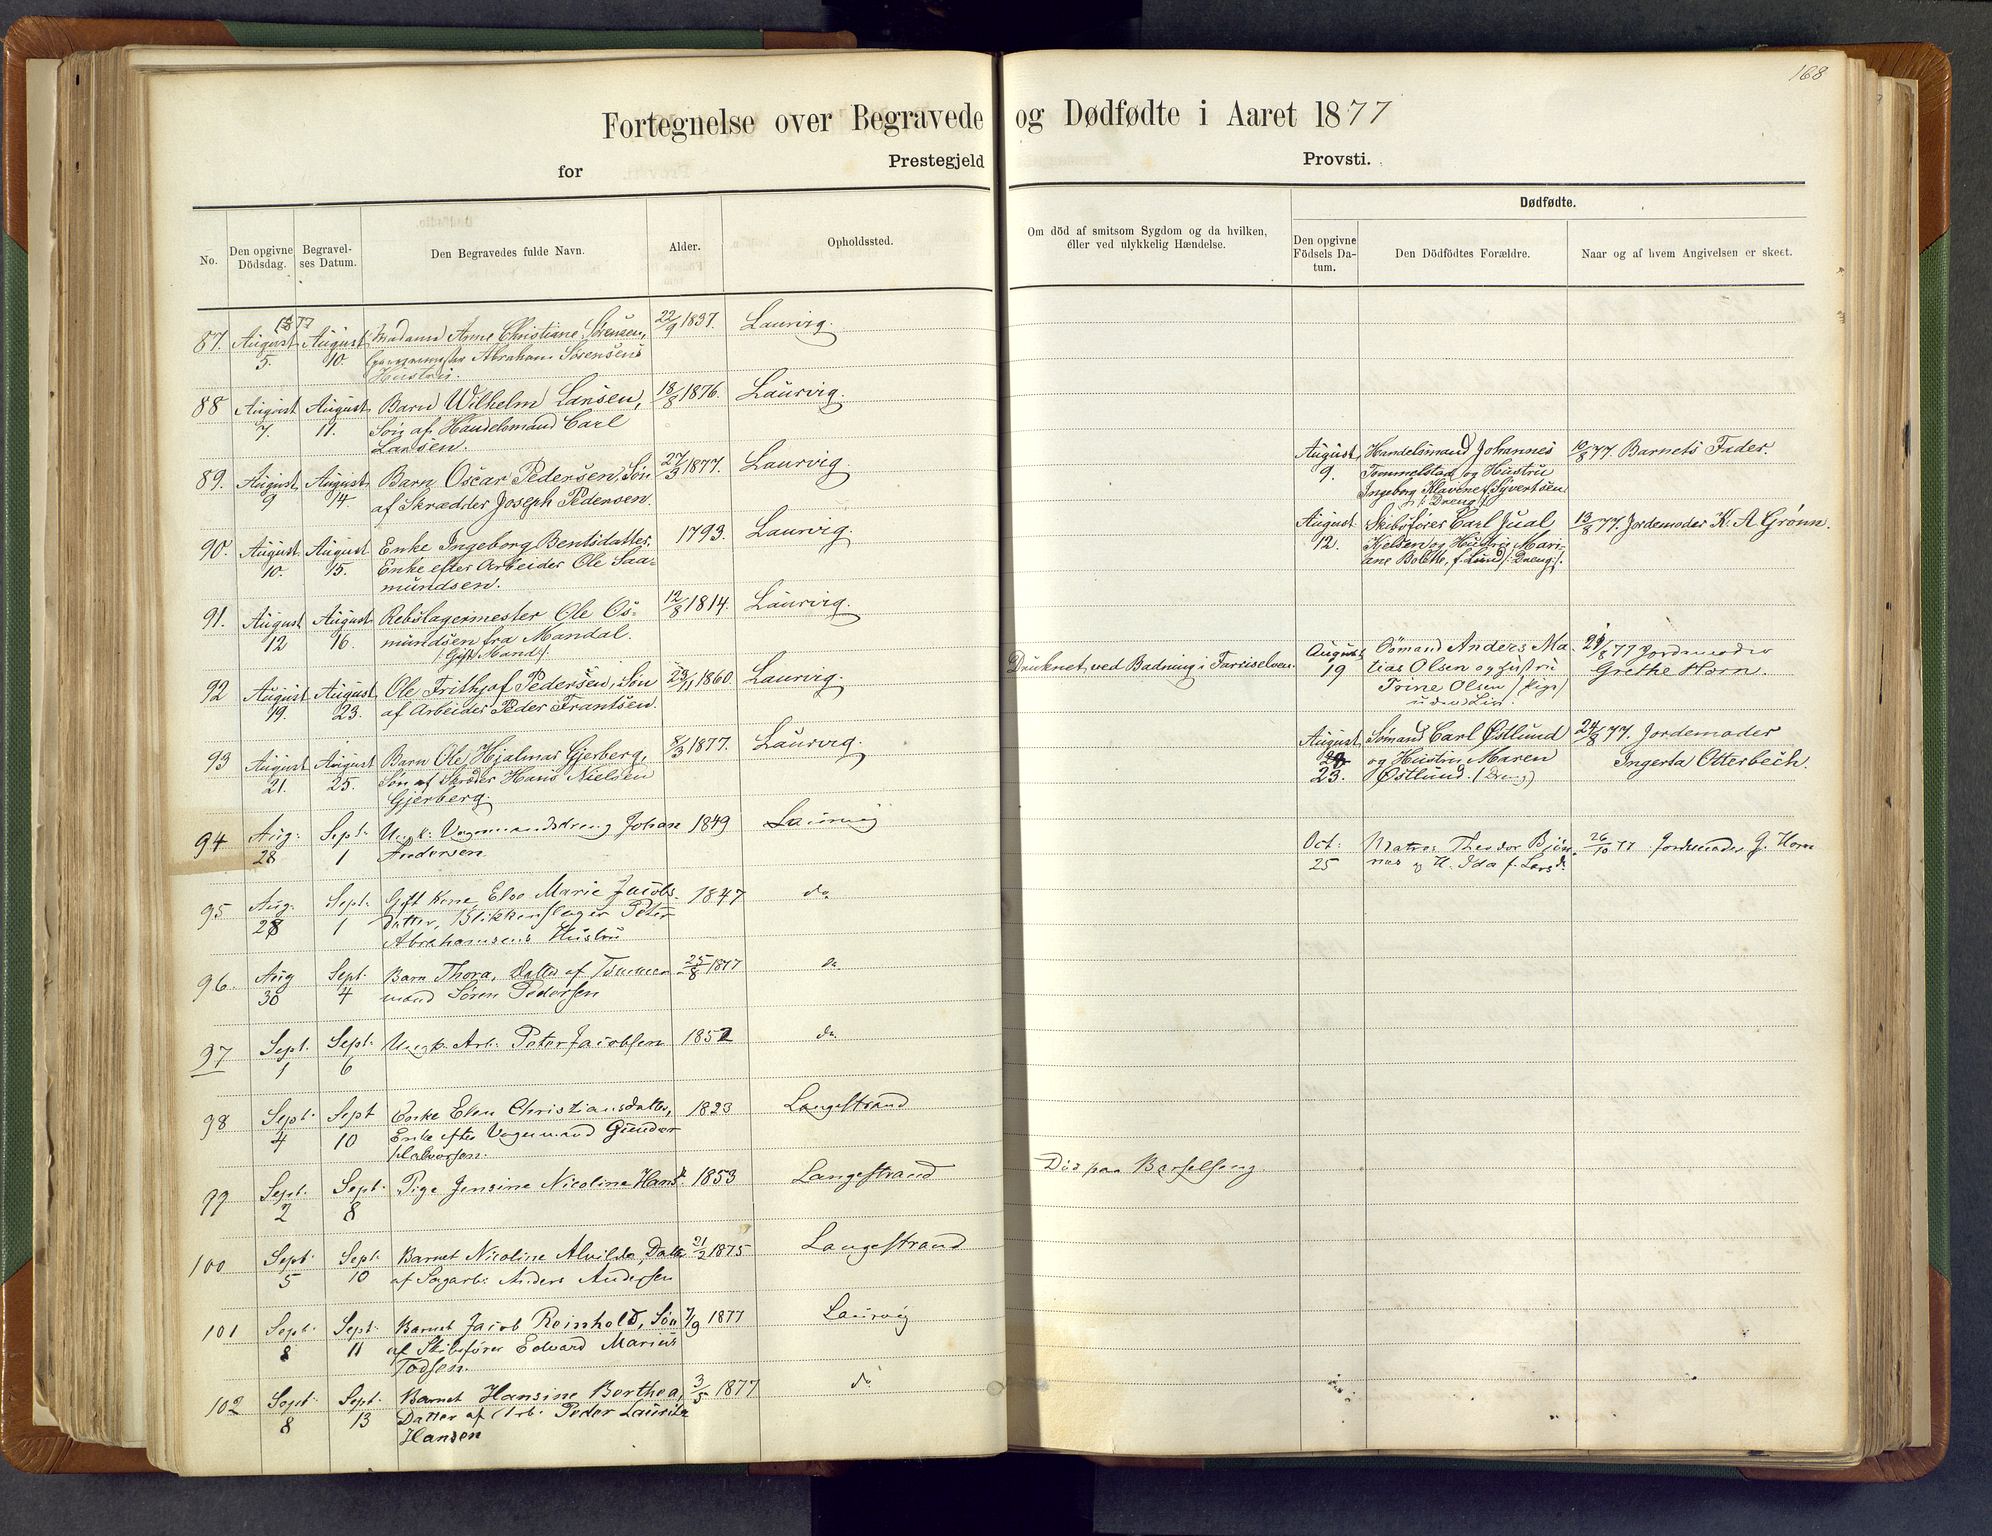 168
Fortegnelse over Begravede og Dødfødte i Aaret 1877
for Prestegjeld Provsti.
No.
Den opgivne Dödsdag.
Begravelses Datum.
Den Begravedes fulde Navn.
Alder.
Opholdssted.
Om död af smitsom Sygdom og da hvilken,
éller ved ulykkelig Hændelse.
Dødfødte.
Den opgivne Födsels Datum.
Den Dödfödtes Forældre.
Naar og af hvem Angivelsen er skeet.
1877
87. August 5. August 10. Madame Anne Christiane Sørensen, 22/9 1837. Laurvig.
Abraham Sørensens
Hustru.
88 August 7. August 11. Barn Wilhelm Larsen, 18/8 1876. Laurvig.
Søn af Handelsmand Carl
Larsen.
89. August 9 August 14. Barn Oscar Pedersen, Søn 27/3 1877. Laurvig
af Skrædder Joseph Pedersen.
90. August 10. August 15. Enke Ingeborg Bentsdatter, 1793. Laurvig.
Enke efter Arbeider Ole Saa-
mundsen.
91. August 12 August 16. Rebslagermester Ole Os- 12/8 1814. Laurvig.
mundsen fra Mandal.
/: Gift Mand :/
92 August 19. August 23. Ole Frithjof Pedersen, Søn 1860. Laurvig.
af Arbeider Peder Frantsen.
93 August 21. August 25. Barn Ole Hjalmar Gjerberg, 8/3 1877. Laurvig.
Søn af Skræder Hans Nielsen
Gjerberg
94 Aug: 28 Sept: 1 Ungk: Vognmandsdreng Johan 1849 Laurvig
Andersen.
95 Aug. 28 Sept. 1 Gift Kone Marie Jacobs- 1847 do
datter, Blikkenslager Peter
Abrahamsens Hustru
96. Aug 30 Sept. 4 Barn Thora, Datter af Tømmer- 25/8 1877 do
mand Søren Pedersen
97 Sept. 1 Sept. 6 Ungk. Arb: Peter Jacobsen do
98 Sept. 4 Sept 10 Enke Elen Christiansdatter, 1823 Langestrand
Enke efter Vognmand Gunder
Halvorsen.
99 Sept. 2 Sept. 8 Pige Jensine Nicoline Hans 1853 Langestrand
100 Sept 5 Sept. 10 Barnet Nicoline Alvilde, Datter 21/2 1875 Langestrand
af Sagarb: Anders Andersen
101 Sept. 8 Sept. 11 Barnet Jacob Reinhold, Søn 7/9 1877 Laurvig
af Skibsfører Edvard Marius
Todsen.
102 Sept. 8 Sept. 13 Barnet Hansine Berthea, 3/5 1877 do
Datter af Arb. Peder Lauritz
Hansen
Druknet ved Badning i Farriselven.
Død paa Barselseng.
August 9. Handelsmand Johannes 10/8 77. Barnets Fader.
Tommelstad og Hustru
Ingeborg Klavine f. Syvertsen
/: Dreng :/
August 12. Skibsfører Carl Jual 13/8 77. Jordemoder K. A Grønn.
Kjelsen og Hustru Mari-
ane Bolette, f. Lund /: Dreng :/.
August 19 Sømand Anders Ma- 21/8 77 Jordemoder
tias Olsen og Hustru Grethe Horn.
Trine Olsen /Pige/
uden Liv.
August 23. Sømand Carl Østlund 24/8 77. Jordemoder
og Hustru Maren Ingerta Otterbech.
Østlund. /Dreng/
Oct: 25 Matros Theodor Bjøn- 26/10 77 Jordemoder G. Horn
nes og H. Ida f. Larsd.